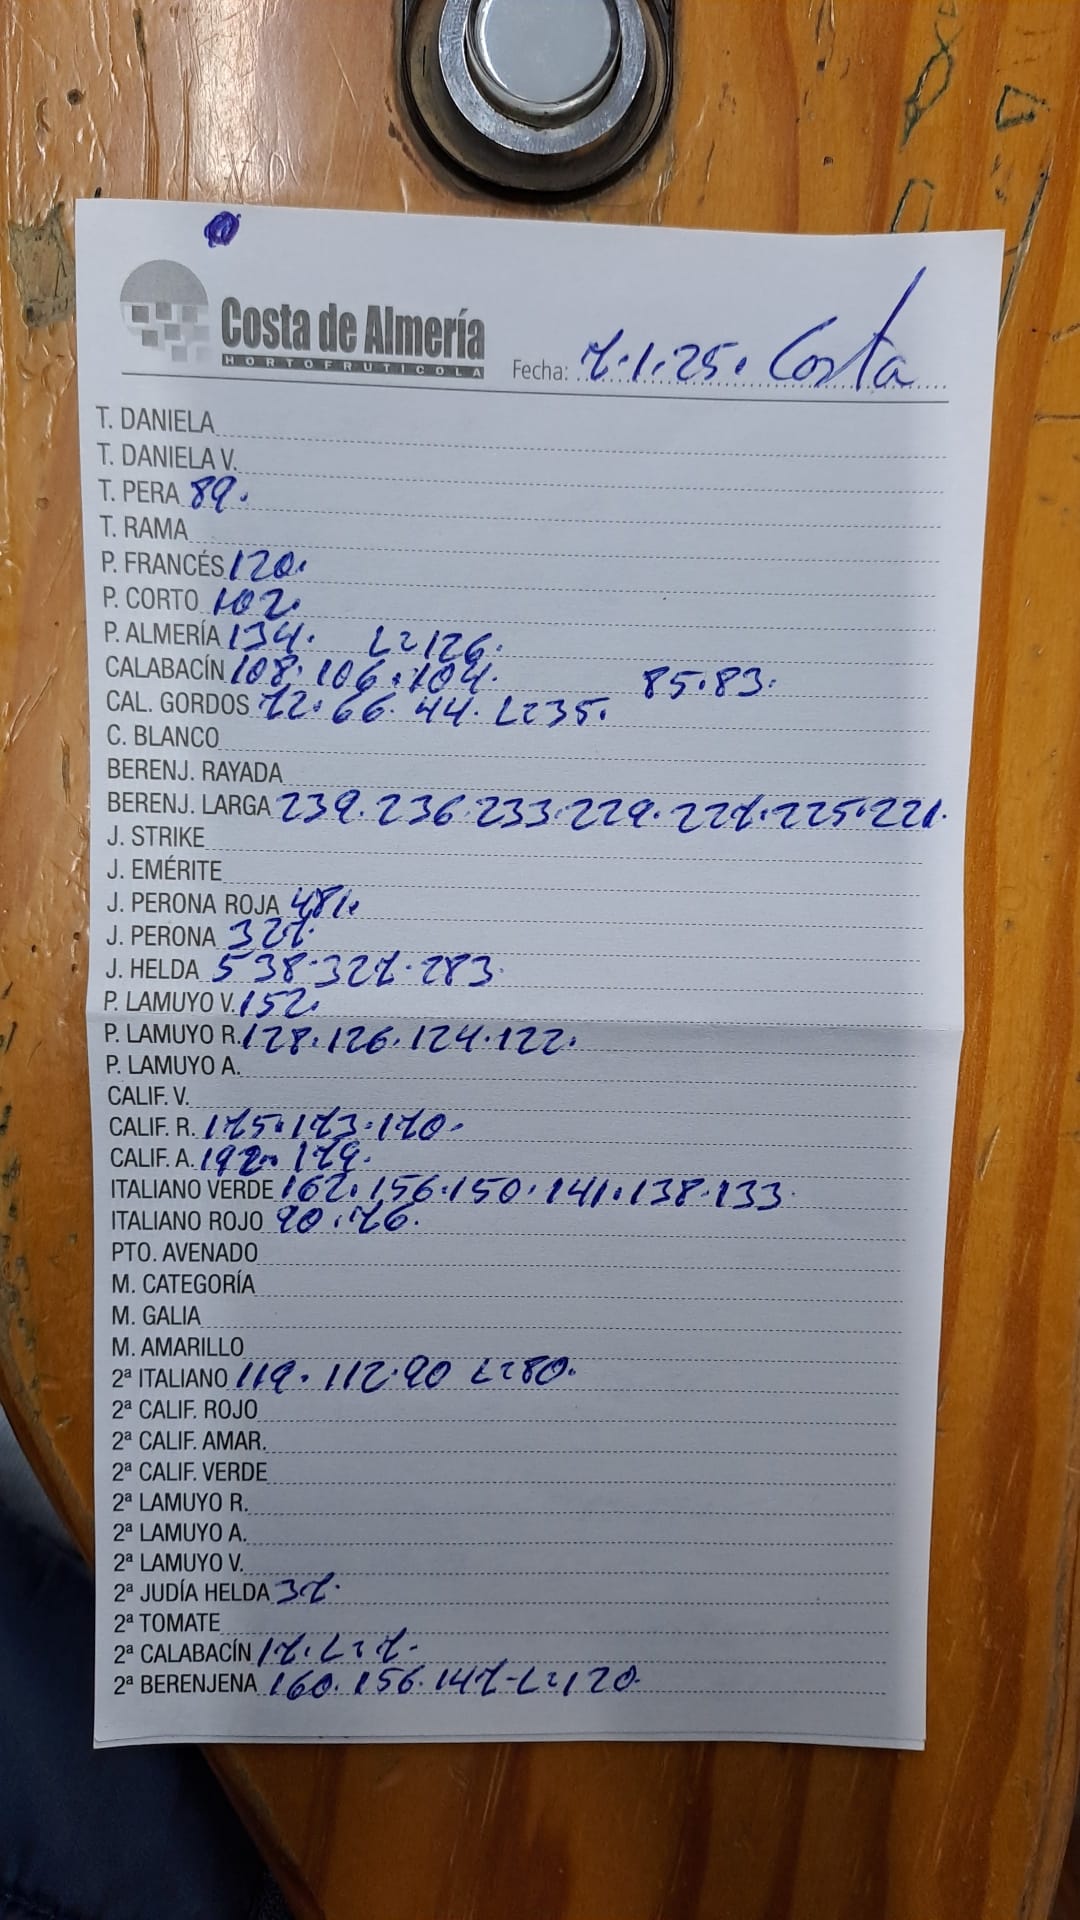 Costa de Almería
HORTOFRUTICOLA
Fecha: 7.1.25. Costa
T. DANIELA
T. DANIELA V.
T. PERA 89.
T. RAMA
P. FRANCÉS 120.
P. CORTO 102.
P. ALMERÍA 134. L=126.
CALABACÍN 108. 106. 104. 85.83.
CAL. GORDOS 72. 66. 44. L=35.
C. BLANCO
BERENJ. RAYADA
BERENJ. LARGA 239.236.233.229.227.225.221.
J. STRIKE
J. EMÉRITE
J. PERONA ROJA 481.
J. PERONA 327.
J. HELDA 538.327.283.
P. LAMUYO V. 152.
P. LAMUYO R. 128.126.124.122.
P. LAMUYO A.
CALIF. V.
CALIF. R. 175.173.170.
CALIF. A. 192. 179.
ITALIANO VERDE 162.156.150.141.138.133.
ITALIANO ROJO 90.76.
PTO. AVENADO
M. CATEGORÍA
M. GALIA
M. AMARILLO
2ª ITALIANO 119. 112.90 L=80.
2ª CALIF. ROJO
2ª CALIF. AMAR.
2ª CALIF. VERDE
2ª LAMUYO R.
2ª LAMUYO A.
2ª LAMUYO V.
2ª JUDÍA HELDA 37.
2ª TOMATE
2ª CALABACÍN 17. L=7.
2ª BERENJENA 160. 156. 147-L=120.